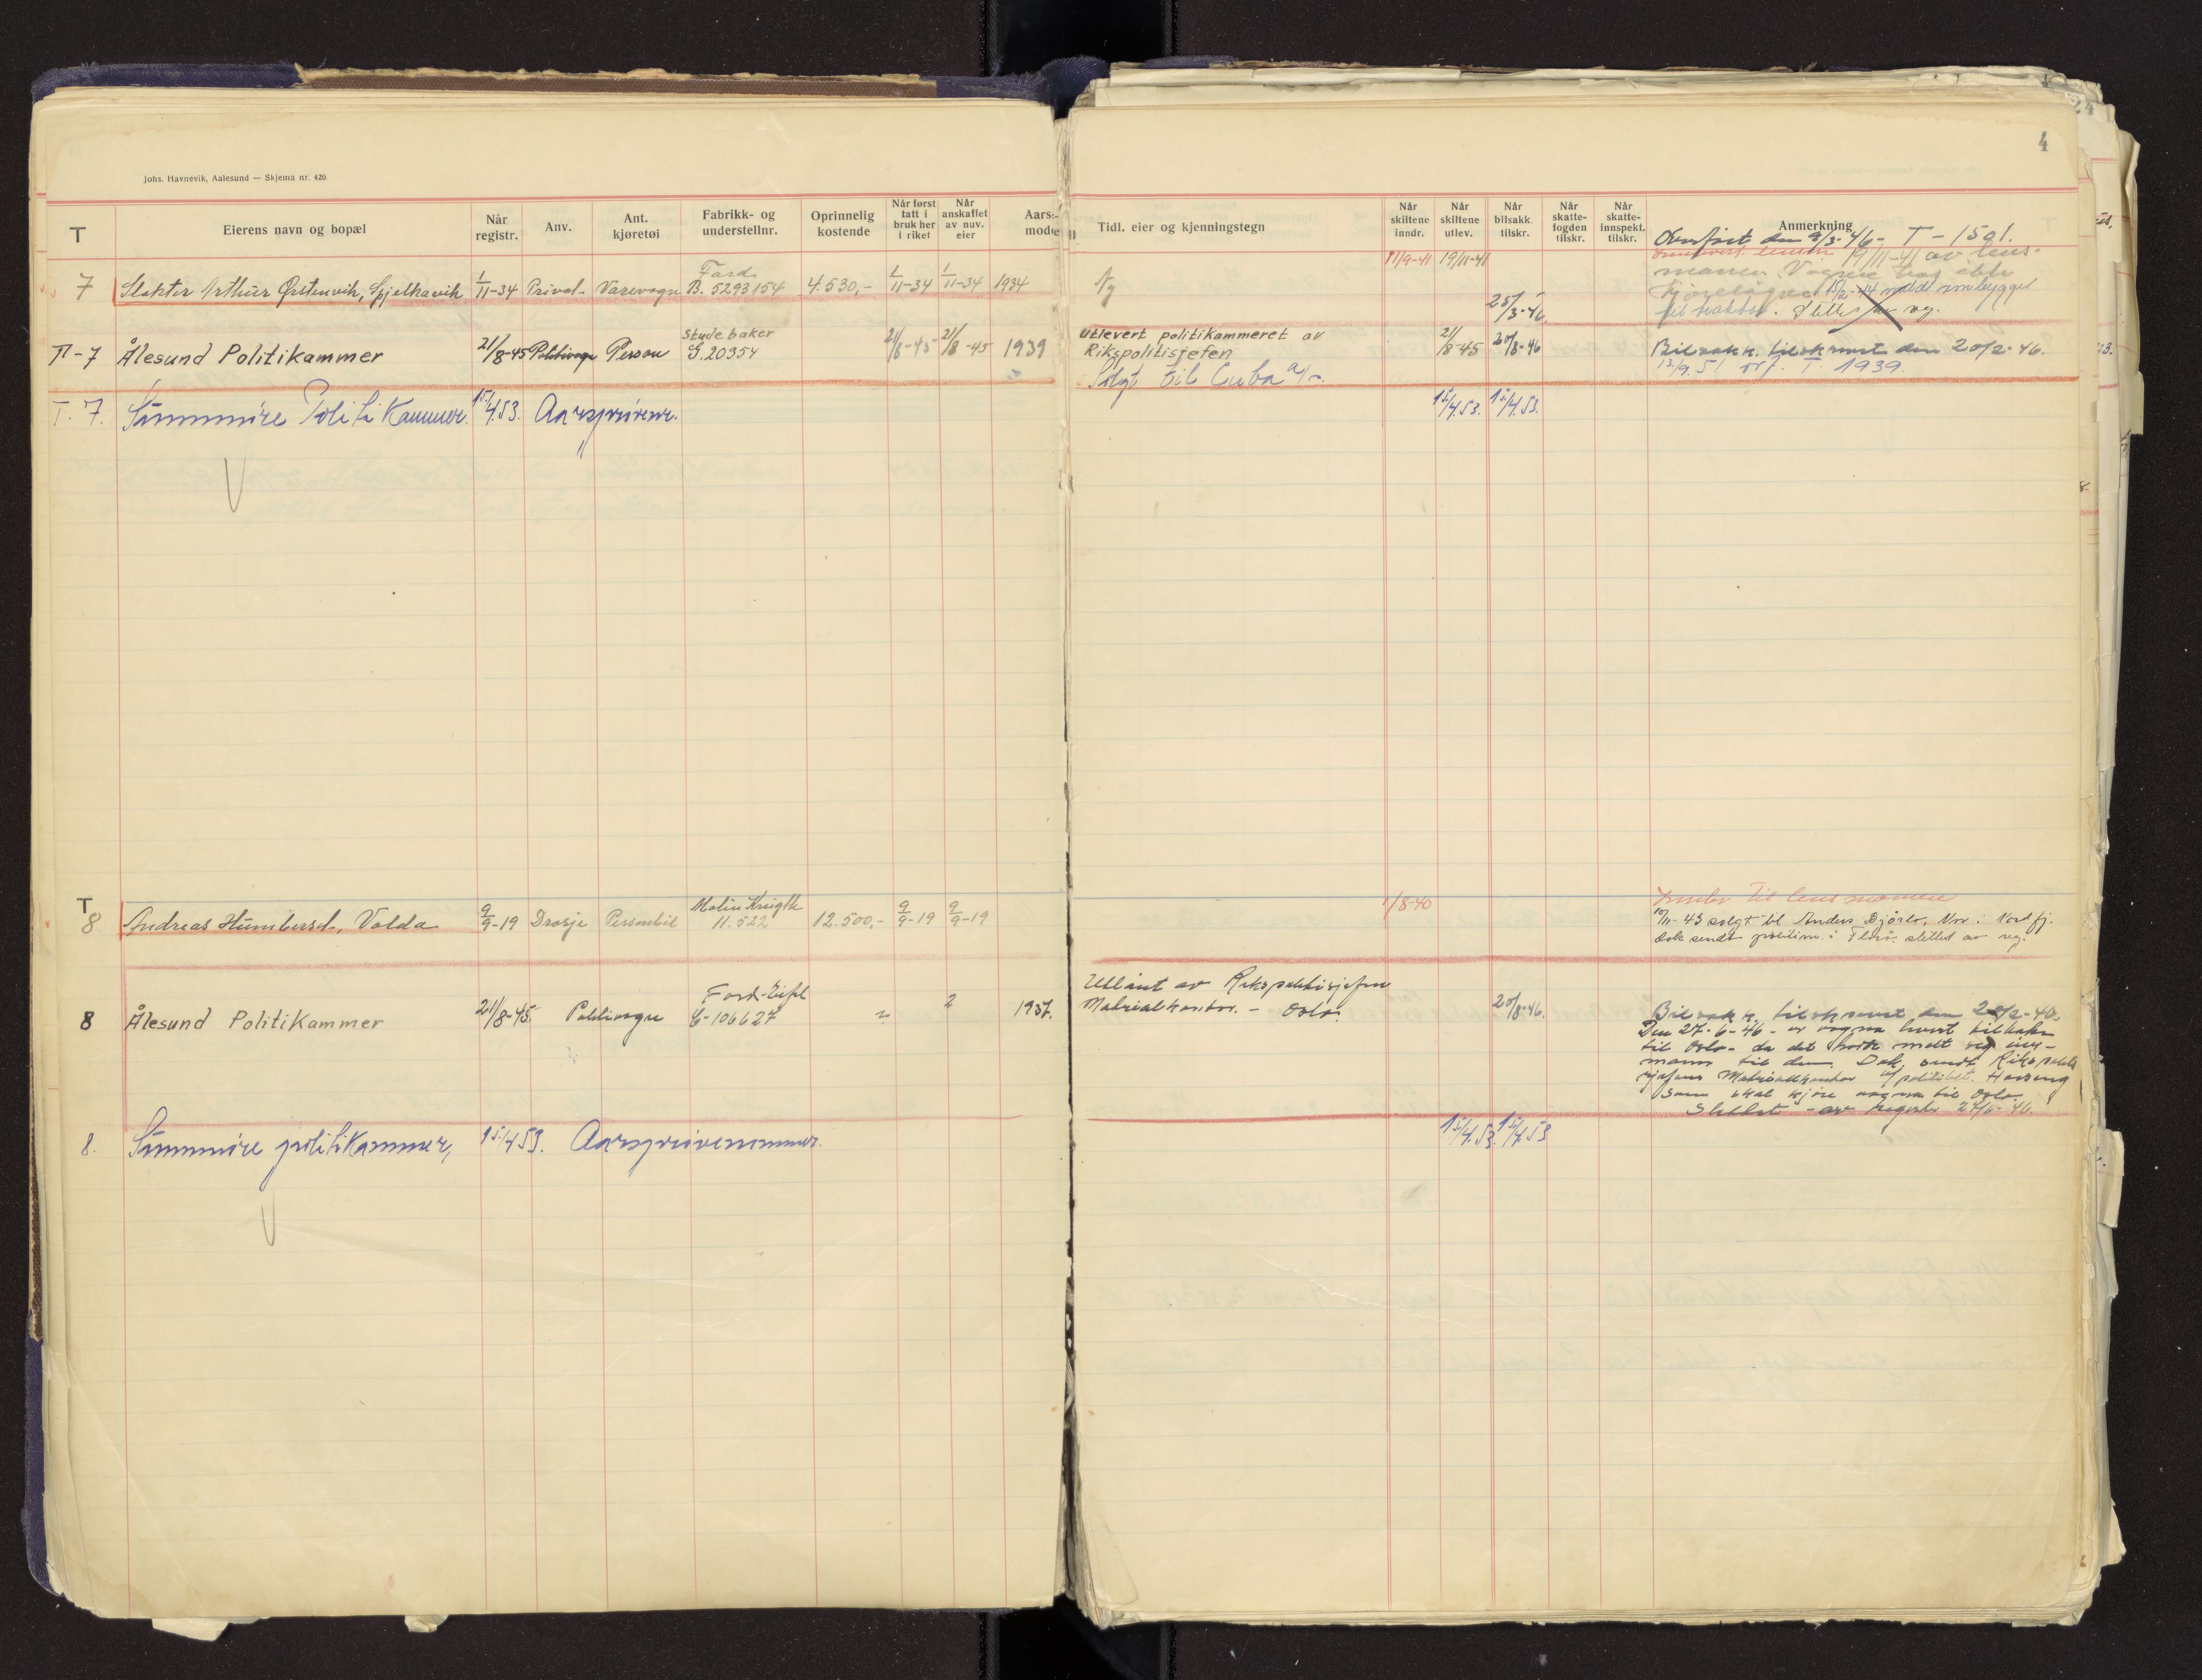 4
Johs. Havnevik, Aalesund — Skjema nr. 420
T
Eierens navn og bopæl
Når registr.
Anv.
Ant. kjøretøi
Fabrikk- og understellnr.
Oprinnelig kostende
Når først tatt i bruk her i riket
Når anskaffet av nuv. eier
Aars- model
Tidl. eier og kjenningstegn
Når skiltene inndr.
Når skiltene utlev.
Når bilsakk. tilskr.
Når skatte- fogden tilskr.
Når skatte- innspekt. tilskr.
Anmerkning
7 Slakter Arthur Ørstenvik, Spjelkavik 1/11-34 Privat Varevogn Ford B. 5293154 4.530,- 1/11-34 1/11-34 1934
Ny 11/9-41 19/11-41 25/3-46.
Overført den 9/3-46- T-1591.
19/11-41 av lens-
mannen. Vognen har ikke
kjøreløyve 15/2-44 meldt ombygget
til traktor. Slettes av reg.
T-7 Ålesund Politikammer 21/8-45 Politivogn Person Studebaker G. 20354 21/8-45 21/8-45 1939
Utlevert politikammeret av
Rikspolitisjefen 21/8-45 20/8-46
Solgt til Cuba a/s.
Bilsakk. tilskrevet den 20/2-46.
13/9.51 T. 1939.
T. 7. Sunnmøre PolitiKammer. 15/4.53. Aarsprøvenr.
15/4.53. 15/4.53.
T
8 Andreas Humberset, Volda 9/9-19 Drosje Personbil Molin Knigth 11.522 12.500,- 9/9-19 9/9-19
1/8-40
Innlev til lensmannen
10/11-43 solgt til Anders Bjørlo, Nor i Nordfj.
Dok sendt politim. i Florø. slettet av reg.
8 Ålesund PolitiKammer 21/8-45. Politivogn Ford-Eifel C-106627 ? 2 1937.
Utlånt av Rikspolitisjefen
Materialkontor. - Oslo.
20/8-46.
Bilsakk. tilskrevet den 20/2-46.
Den 27-6-46- er vogna levert tilbake
til Oslo- da det hadde meldt seg eier-
mann til den. Dok. sendt Rikspoliti
sjefens Materialkontor v/politibet. Hasseng
som skal kjøre vogna til Oslo.
Slettet - av register 27/6-46.
8. Sunnmøre politikammer, 15/4 53. Aarsprøvenummer.
15/4.53. 15/4.53